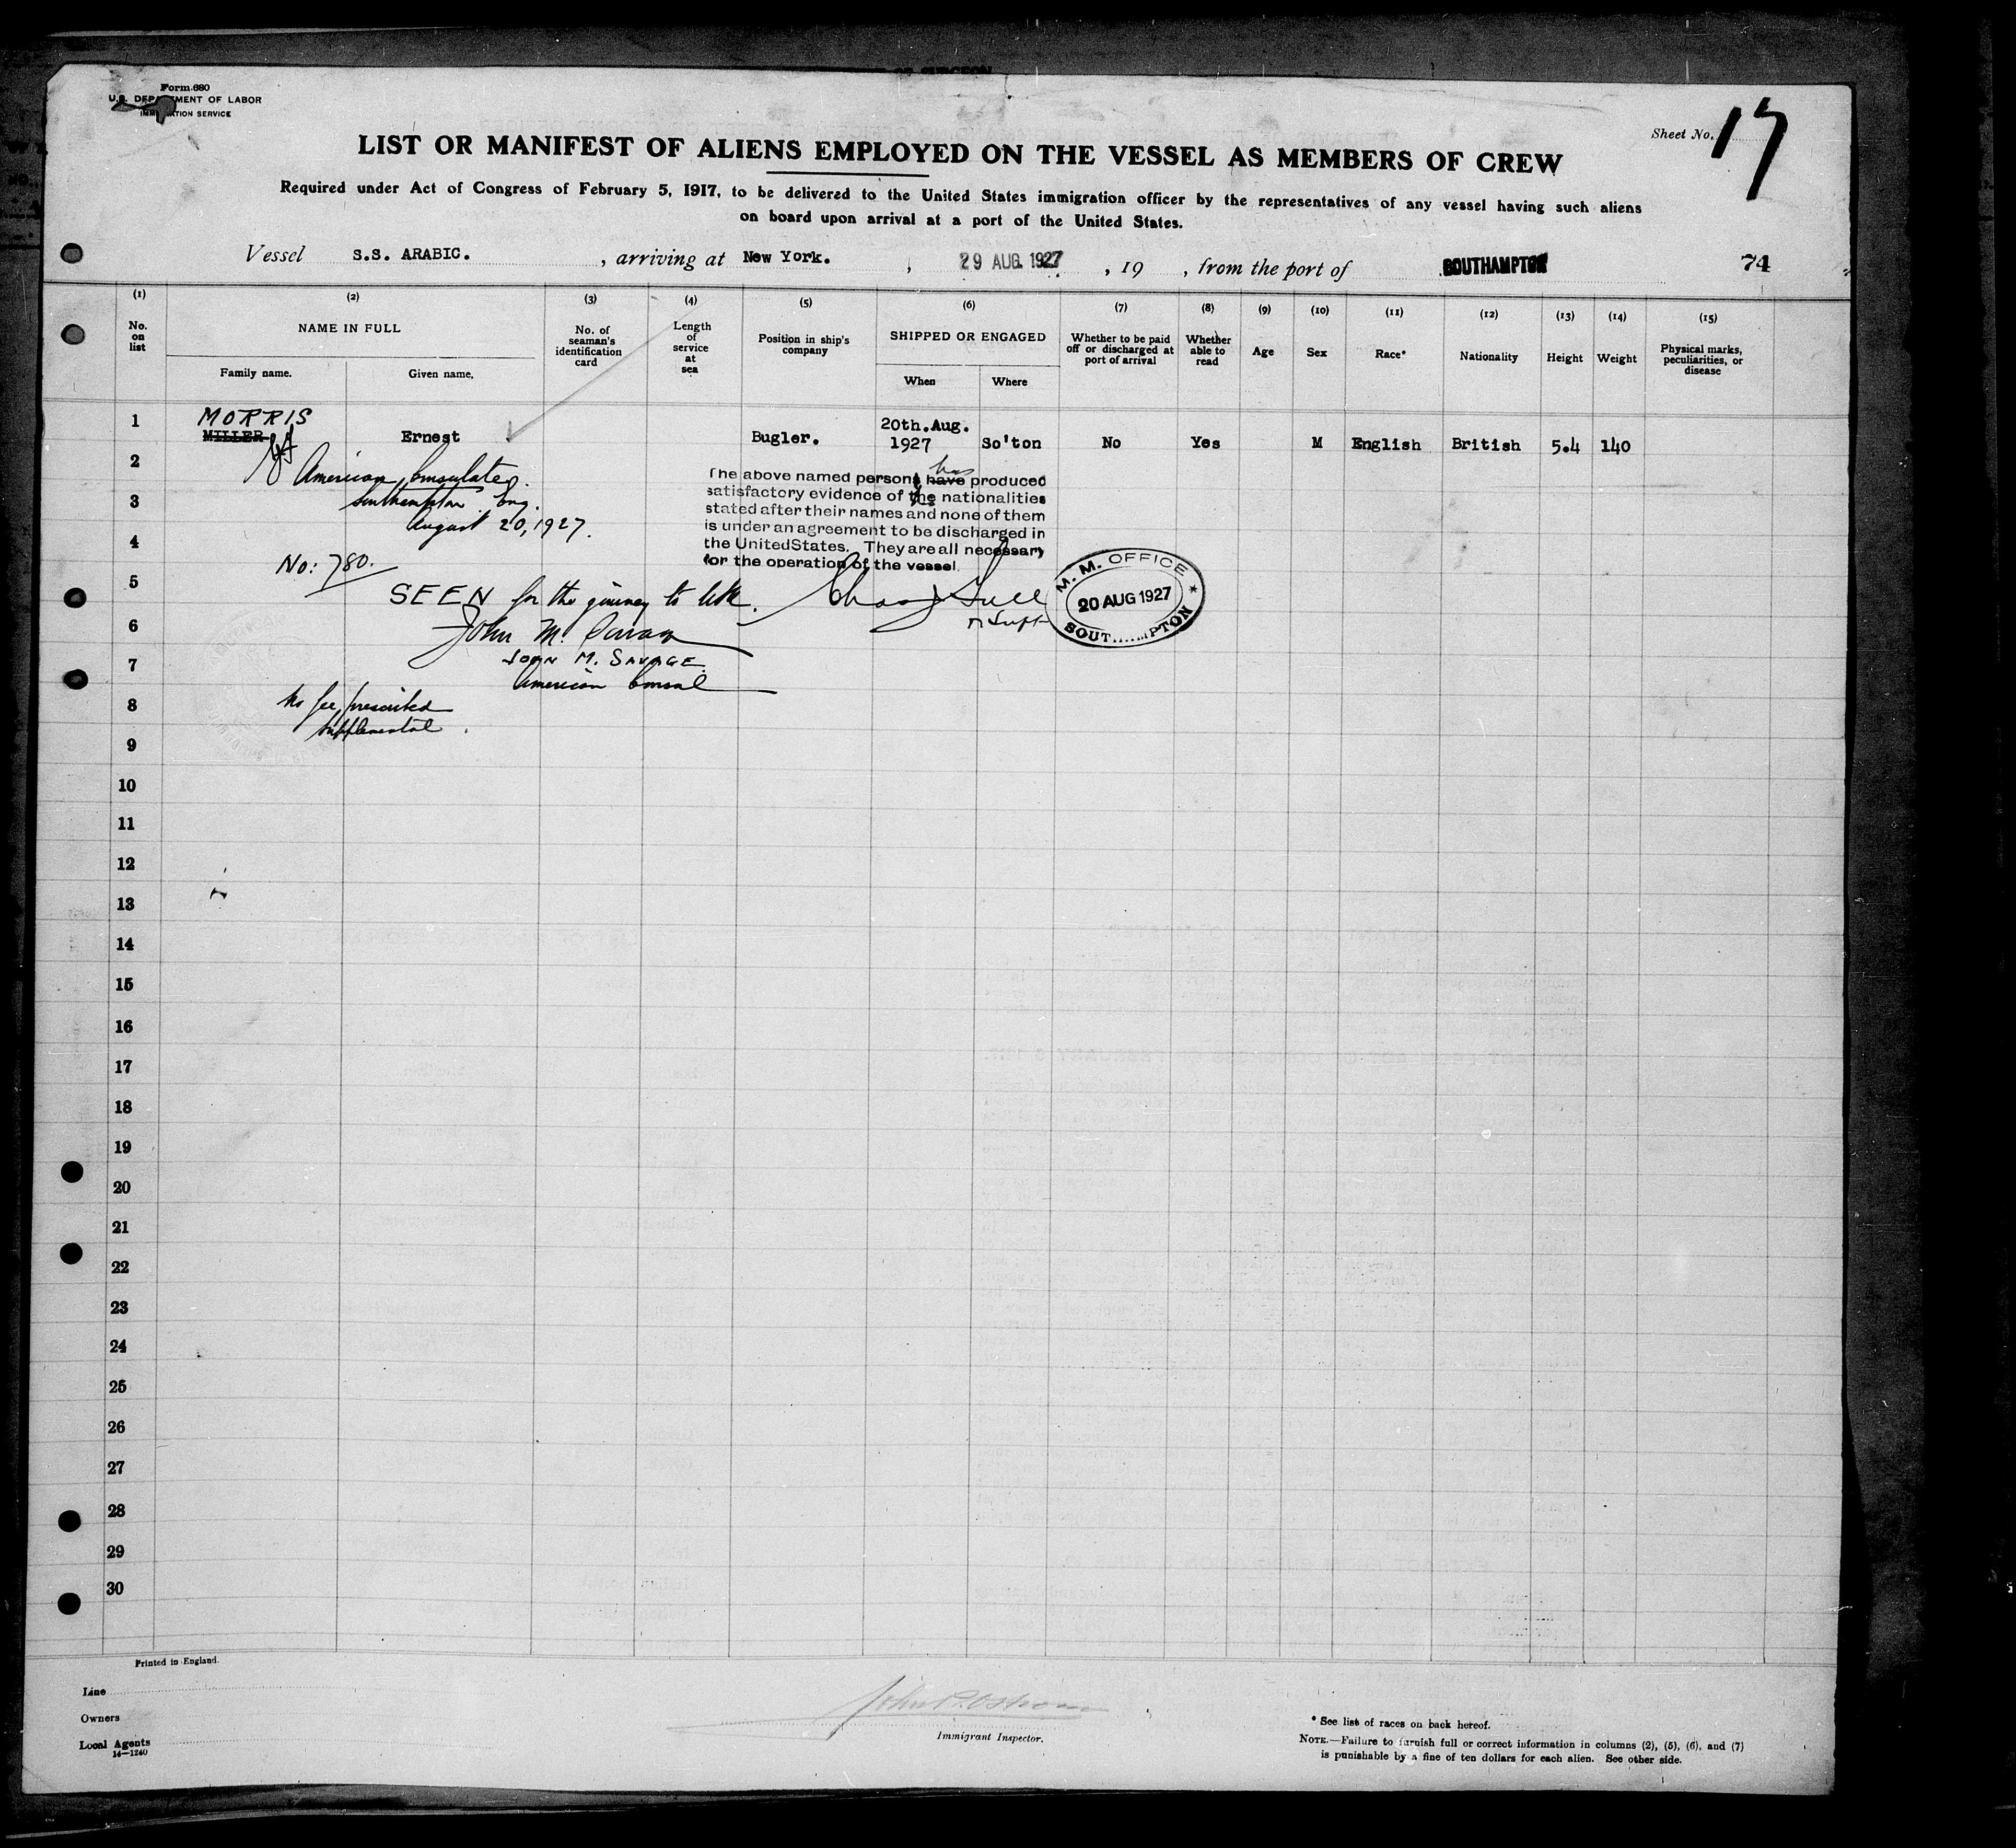 Form 680
U.S. DEPARTMENT OF LABOR
IMMIGRATION SERVICE
Sheet No. 17
LIST OR MANIFEST OF ALIENS EMPLOYED ON THE VESSEL AS MEMBERS OF CREW
Required under Act of Congress of February 5, 1917, to be delivered to the United States immigration officer by the representatives of any vessel having such aliens
on board upon arrival at a port of the United States.
Vessel S.S. ARABIC. , arriving at New York. , 29 AUG. 1927 , 19 , from the port of SOUTHAMPTON 74
(1) (2) (3) (4) (5) (6) (7) (8) (9) (10) (11) (12) (13) (14) (15)
No. on list
NAME IN FULL
Family name. Given name.
No. of seaman's identification card
Length of service at sea
Position in ship's company
SHIPPED OR ENGAGED
When Where
Whether to be paid off or discharged at port of arrival
Whether able to read
Age
Sex
Race*
Nationality
Height
Weight
Physical marks, peculiarities, or disease
MORRIS
1 MILLER Ernest Bugler. 20th.Aug. 1927 So'ton No Yes M English British 5.4 140
2 American Consulate
3 Southampton Eng.
August 20, 1927.
4
No: 780.
The above named persons have has produced
satisfactory evidence of the nationalities
stated after their names and none of them
is under an agreement to be discharged in
the United States. They are all necessary
for the operation of the vessel.
M. M. OFFICE
20 AUG 1927
SOUTHAMPTON
5 SEEN for the journey to
6 John M. Savage
7 JOHN M. SAVAGE.
American Consul
8 No fee prescribed
supplemental.
9
10
11
12
13
14
15
16
17
18
19
20
21
22
23
24
25
26
27
28
29
30
Printed in England.
Line
Owners
Local Agents
14—1240
Immigrant Inspector.
* See list of races on back hereof.
NOTE.—Failure to furnish full or correct information in columns (2), (5), (6), and (7)
is punishable by a fine of ten dollars for each alien. See other side.